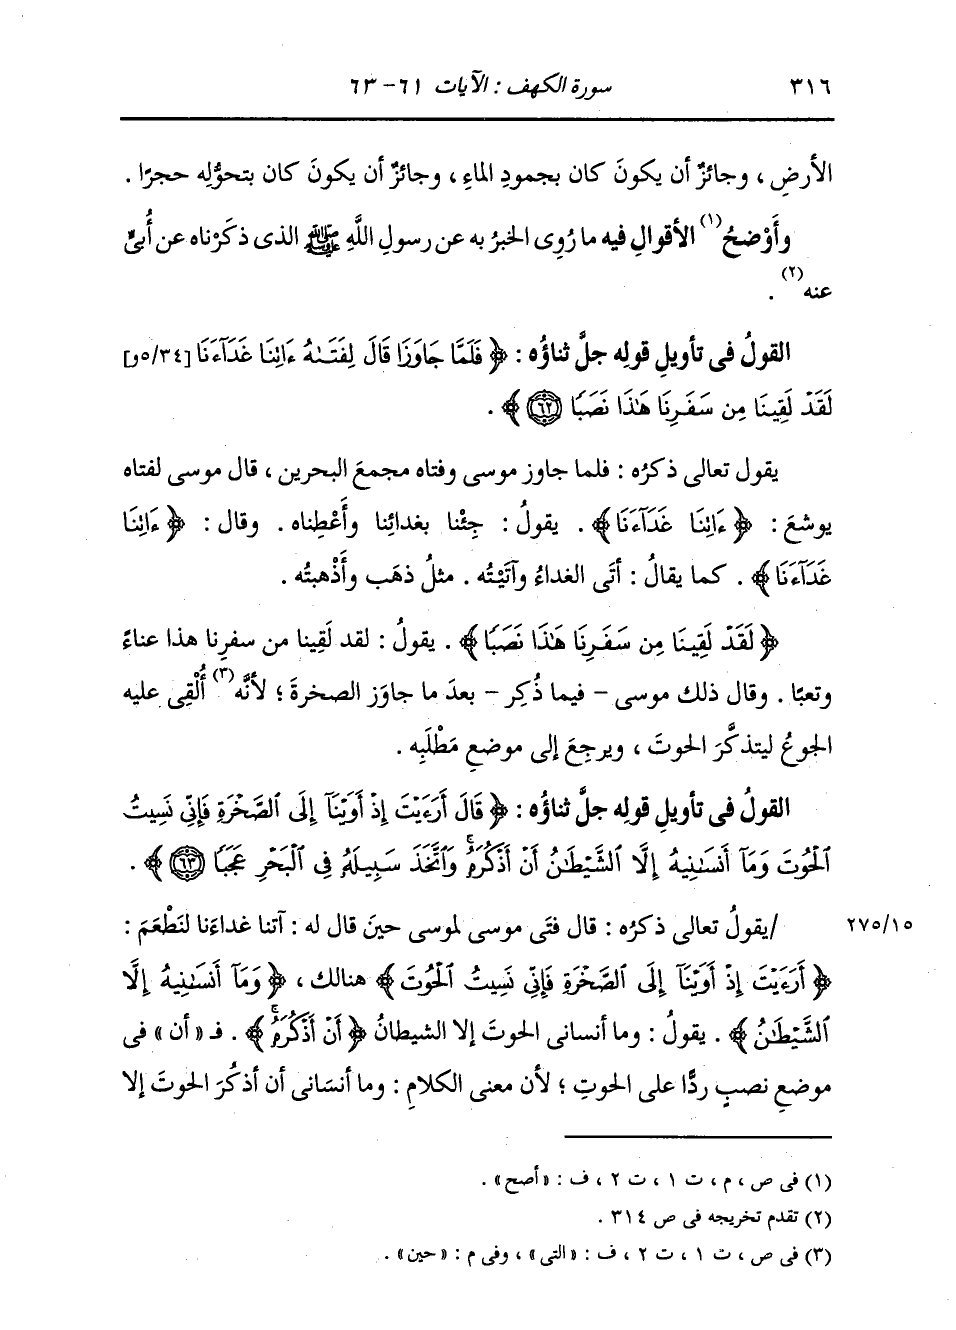 ٣١٦ سورة الكهف : الآيات ٦١ - ٦٣
الأرضِ ، وجائزٌ أن يكونَ كان بجمودِ الماءِ ، وجائزٌ أن يكونَ كان بتحوُّلِه حجرًا .
وأَوْضحُ(١) الأقوالِ فيه ما رُوِى الخبرُ به عن رسولِ اللَّهِ ﷺ الذى ذكَرْناه عن أُبىٍّ
عنه(٢) .
القولُ فى تأويلِ قولِه جلَّ ثناؤُه : ﴿ فَلَمَّا جَاوَزَا قَالَ لِفَتَىٰهُ ءَاتِنَا غَدَآءَنَا [٥/٣٤و]
لَقَدْ لَقِينَا مِن سَفَرِنَا هَٰذَا نَصَبًا ﴿٦٢﴾ ﴾ .
يقول تعالى ذكرُه : فلما جاوز موسى وفتاه مجمعَ البحرين ، قال موسى لفتاه
يوشعَ : ﴿ ءَاتِنَا غَدَآءَنَا ﴾ . يقولُ : جِئْنا بغدائِنا وأَعْطِناه . وقال : ﴿ ءَاتِنَا
غَدَآءَنَا ﴾ . كما يقالُ : أتَى الغداءُ وآتَيْتُه . مثلُ ذهَب وأَذْهبتُه .
﴿ لَقَدْ لَقِينَا مِن سَفَرِنَا هَٰذَا نَصَبًا ﴾ . يقولُ : لقد لَقِينا من سفرِنا هذا عناءً
وتعبًا . وقال ذلك موسى - فيما ذُكِر - بعدَ ما جاوَز الصخرةَ ؛ لأنَّه(٣) أُلْقِى عليه
الجوعُ ليتذكَّرَ الحوتَ ، ويرجِعَ إلى موضعِ مَطْلَبِه .
القولُ فى تأويلِ قولِه جلَّ ثناؤُه : ﴿ قَالَ أَرَءَيْتَ إِذْ أَوَيْنَآ إِلَى ٱلصَّخْرَةِ فَإِنِّى نَسِيتُ
ٱلْحُوتَ وَمَآ أَنسَىٰنِيهُ إِلَّا ٱلشَّيْطَٰنُ أَنْ أَذْكُرَهُۥ ۚ وَٱتَّخَذَ سَبِيلَهُۥ فِى ٱلْبَحْرِ عَجَبًا ﴿٦٣﴾ ﴾ .
/يقولُ تعالى ذكرُه : قال فتَى موسى لموسى حينَ قال له : آتنا غداءَنا لنَطْعَمَ : ٢٧٥/١٥
﴿ أَرَءَيْتَ إِذْ أَوَيْنَآ إِلَى ٱلصَّخْرَةِ فَإِنِّى نَسِيتُ ٱلْحُوتَ ﴾ هنالك ، ﴿ وَمَآ أَنسَىٰنِيهُ إِلَّا
ٱلشَّيْطَٰنُ ﴾ . يقولُ : وما أنسانى الحوتَ إلا الشيطانُ ﴿ أَنْ أَذْكُرَهُۥ ۚ ﴾ . فـ « أن » فى
موضعِ نصبٍ ردًّا على الحوتِ ؛ لأن معنى الكلامِ : وما أنسَانى أن أذكُرَ الحوتَ إلا
(١) فى ص ، م ، ت ١ ، ت ٢ ، ف : « أصح » .
(٢) تقدم تخريجه فى ص ٣١٤ .
(٣) فى ص ، ت ١ ، ت ٢ ، ف : « التى » ، وفى م : « حين » .